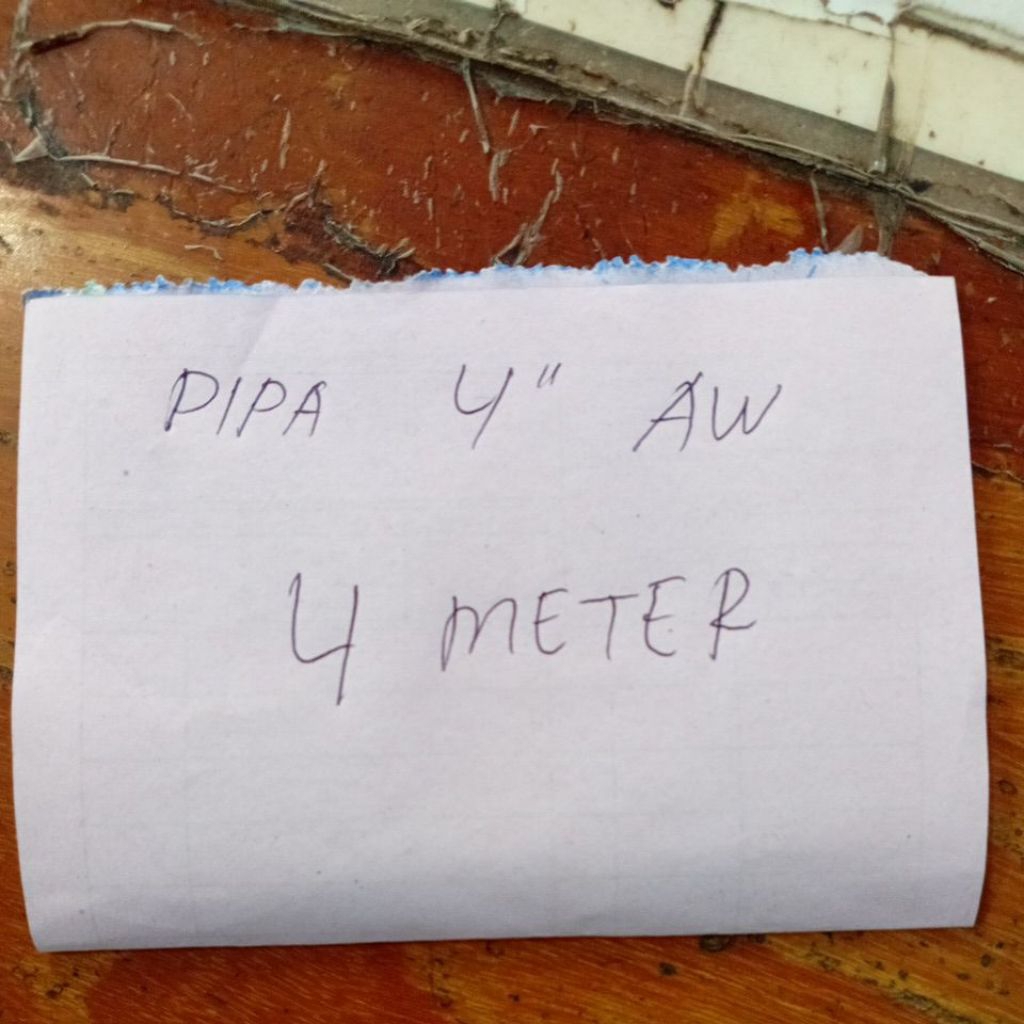 PIPA 4" AW
4 METER